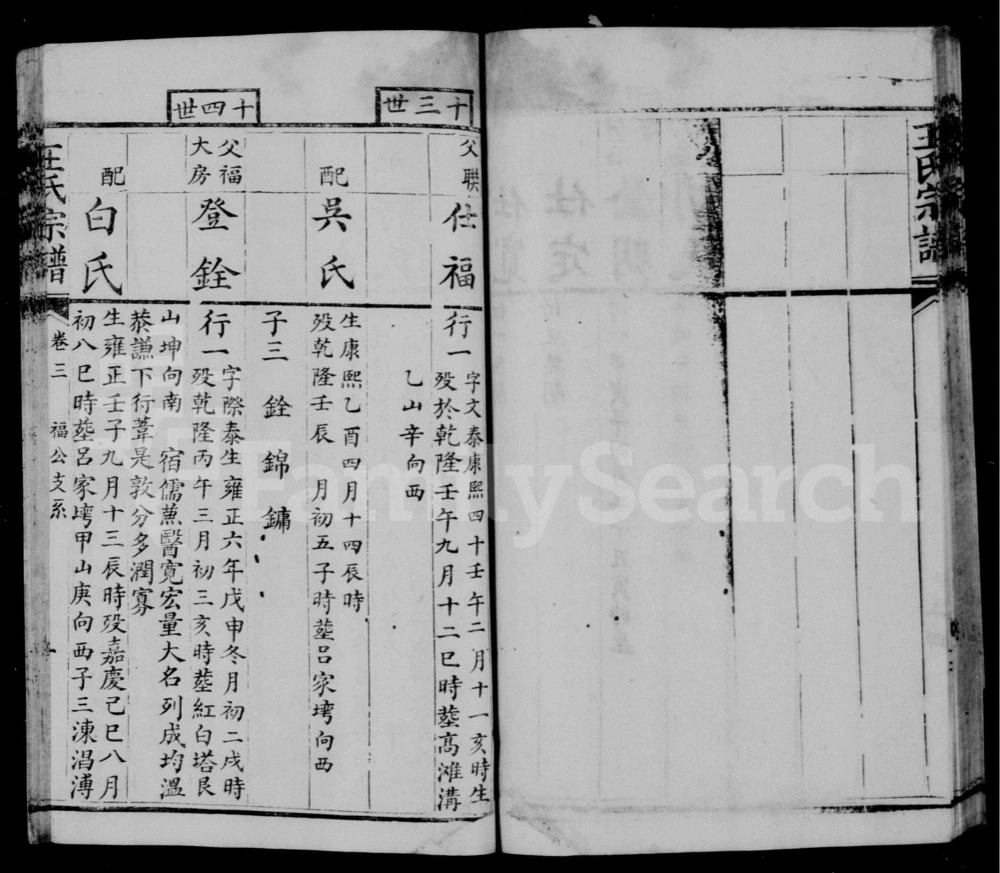 王氏宗譜
十三世
父聯
仕福
行一
字文泰康熙四十壬午二月十一亥時生
歿於乾隆壬午九月十二巳時塟高滩溝
乙山辛向西
配
吳氏
生康熙乙酉四月十四辰時
歿乾隆壬辰 月初五子時塟吕家塆向西
子三 銓 錦 鏞
十四世
父福
大房
登銓
行一
字際泰生雍正六年戊申冬月初二戌時
歿乾隆丙午三月初三亥時塟紅白塔艮
山坤向南 宿儒蕉醫寬宏量大名列成均溫
恭謙下行葦是敦分多潤寡
配
白氏
生雍正壬子九月十三辰時歿嘉慶己巳八月
初八巳時塟呂家塆甲山庚向西子三涷淐溥
王氏宗譜
卷三
福公支系
FamilySearch